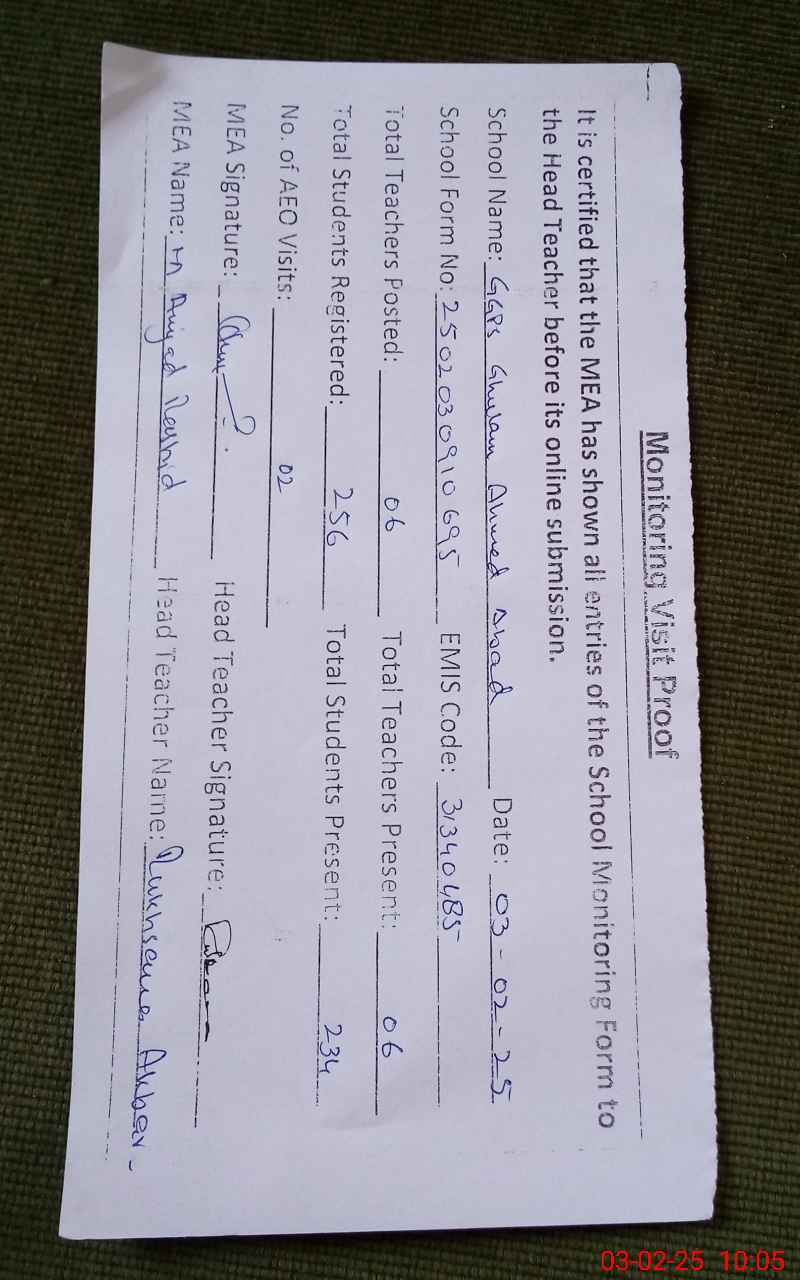 Monitoring Visit Proof
It is certified that the MEA has shown all entries of the School Monitoring Form to
the Head Teacher before its online submission.
School Name: GGPS Ghulam Ahmed Abad Date: 03-02-25
School Form No: 2502030910695 EMIS Code: 31340485
Total Teachers Posted: 06 Total Teachers Present: 06
Total Students Registered: 256 Total Students Present: 234
No. of AEO Visits: 02
MEA Signature: Head Teacher Signature:
MEA Name: M Amjad Rashid Head Teacher Name: Rukhsana Akbar
03-02-25 10:05